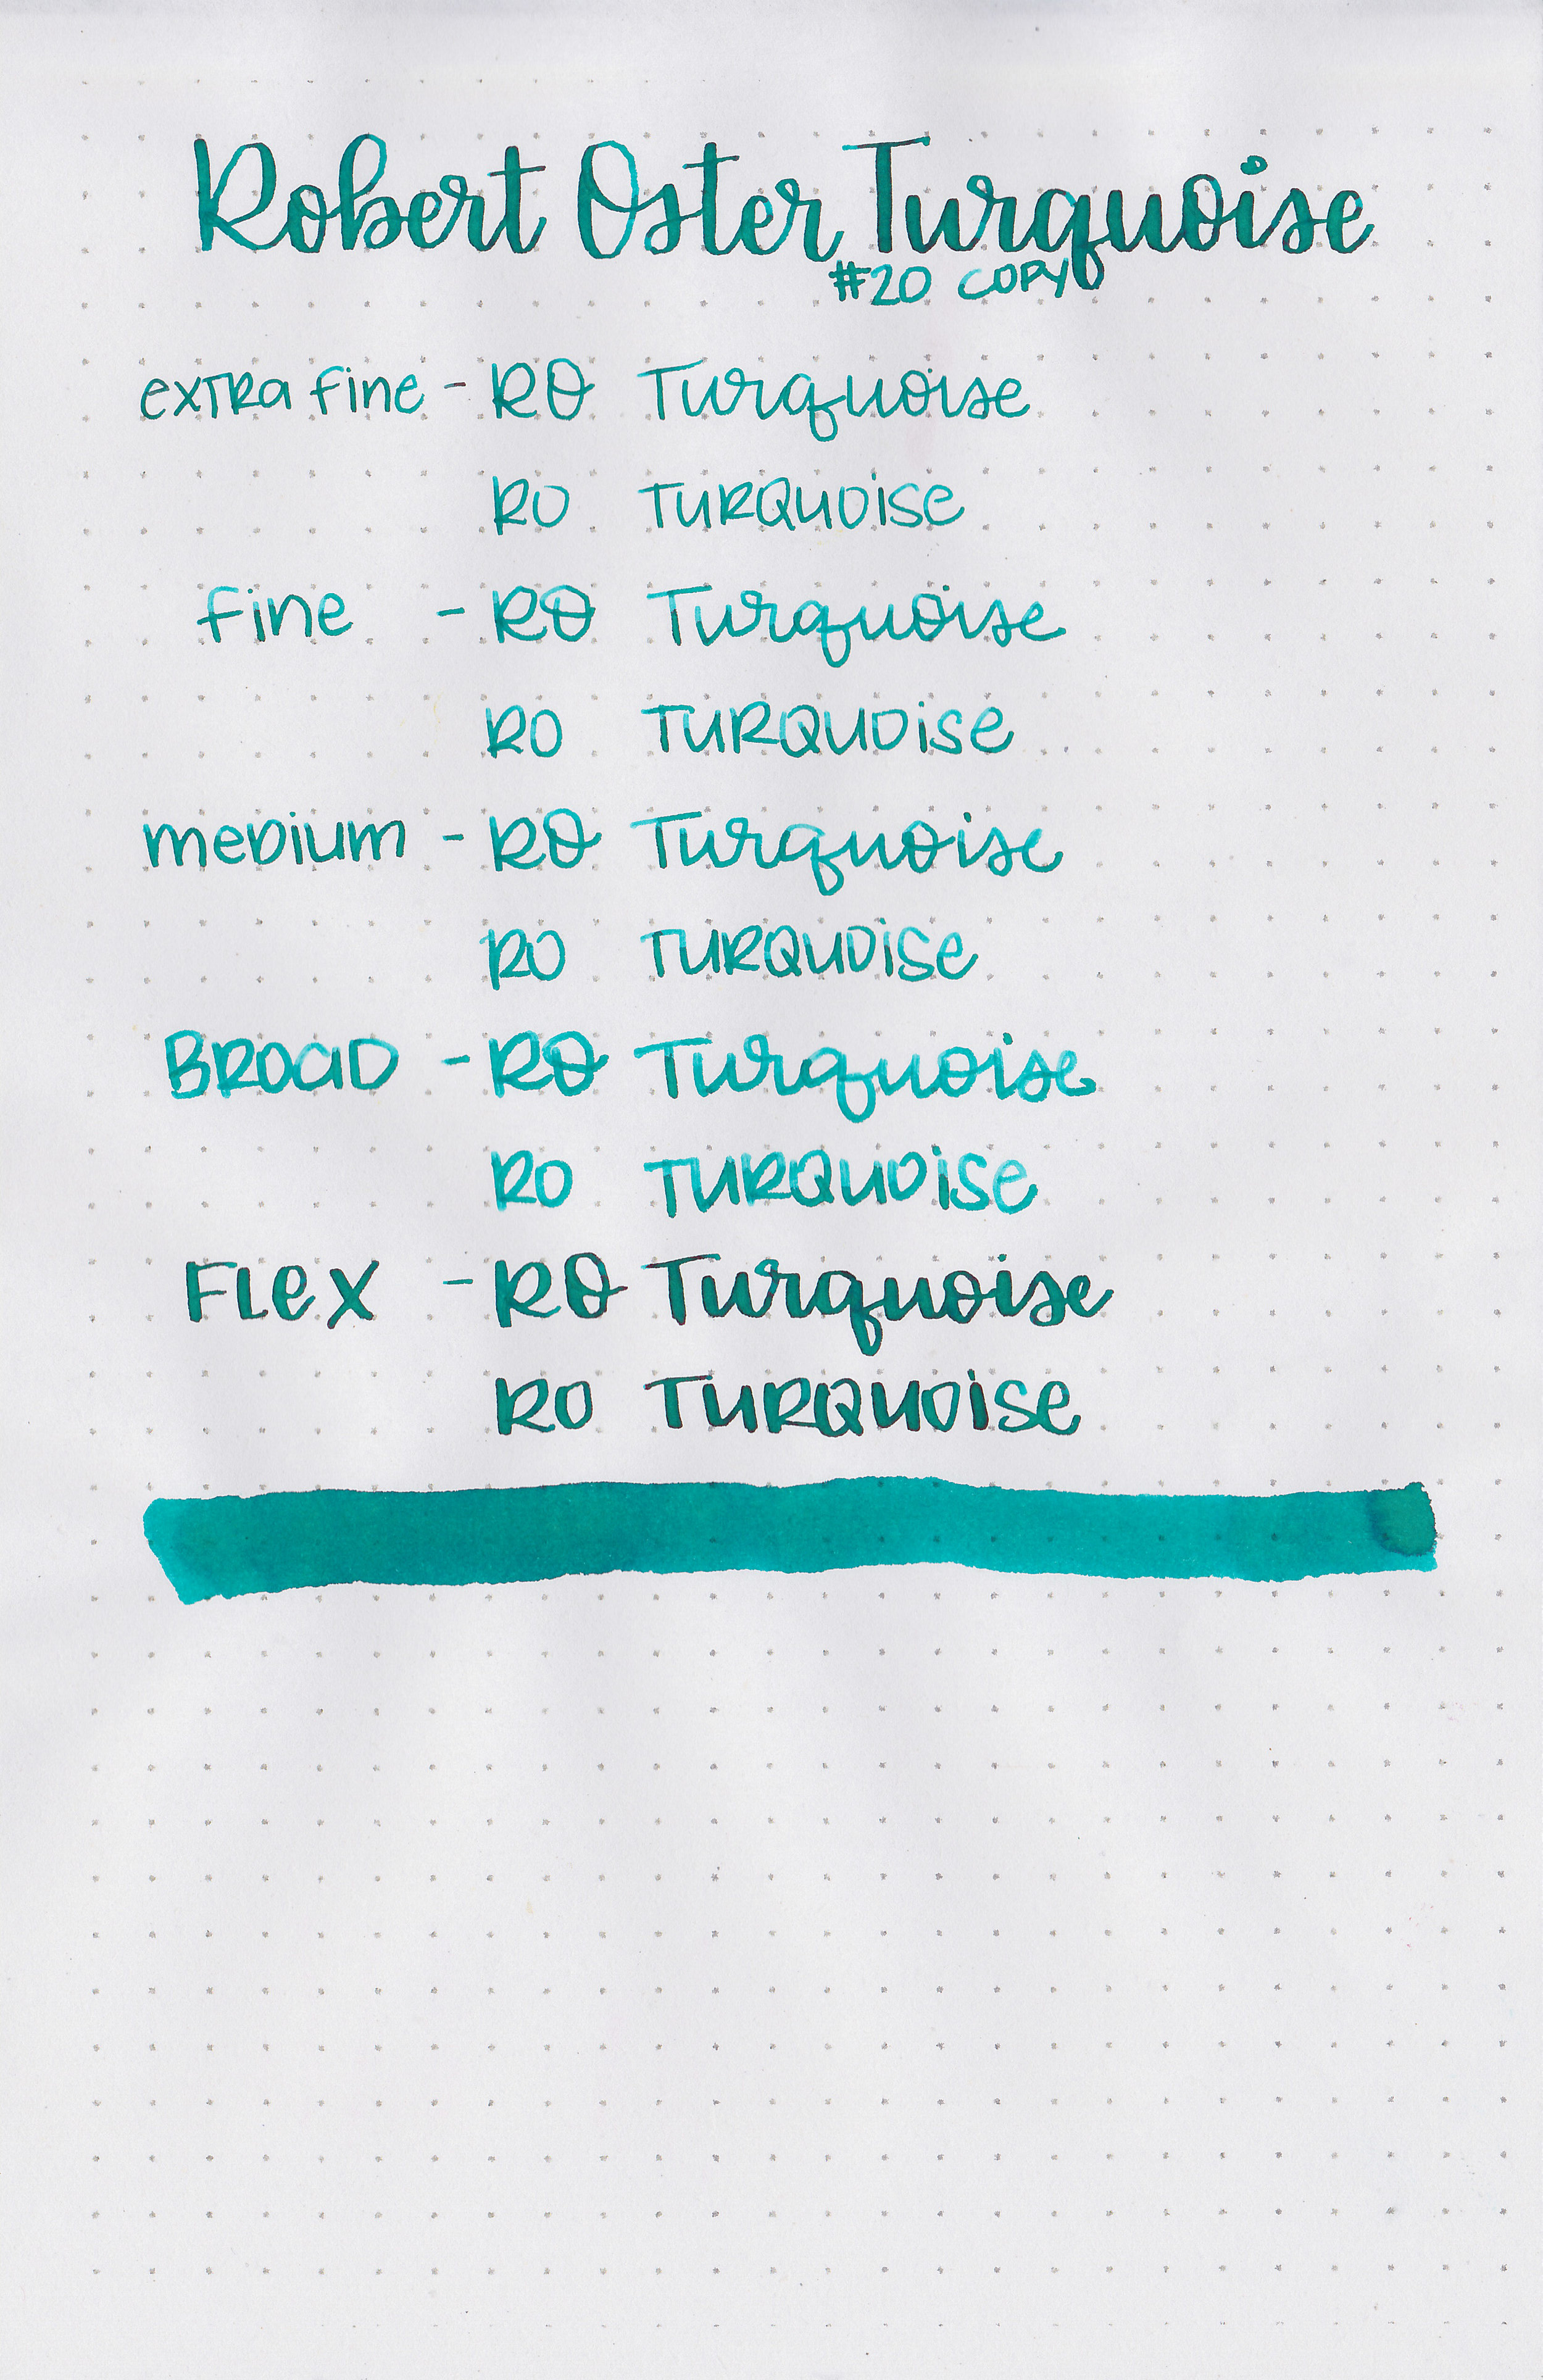 Robert Oster Turquoise
#20 COPY
extra fine - RO Turquoise
RO TURQUOISE
fine - RO Turquoise
RO TURQUOISE
medium - RO Turquoise
RO TURQUOISE
BROAD - RO Turquoise
RO TURQUOISE
FLEX - RO Turquoise
RO TURQUOISE